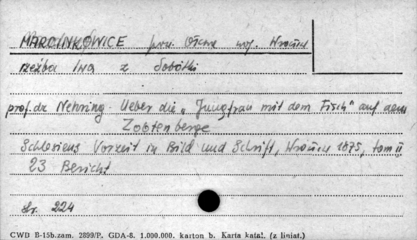 MARCINKOWICE pow. Oława woj. Wrocław
rzeźba lwa z Sobótki
prof. dr. Nehring. Ueber die „Jungfrau mit dem Fisch" auf dem
Zobtenberge
Schlesiens Vorzeit in Bild und Schrift, Wrocław 1875, tom II,
23 Bericht
str. 224
CWD B-15b.zam. 2899/P. GDA-8. 1.000.000. karton b. Karta katal. (z liniat.)